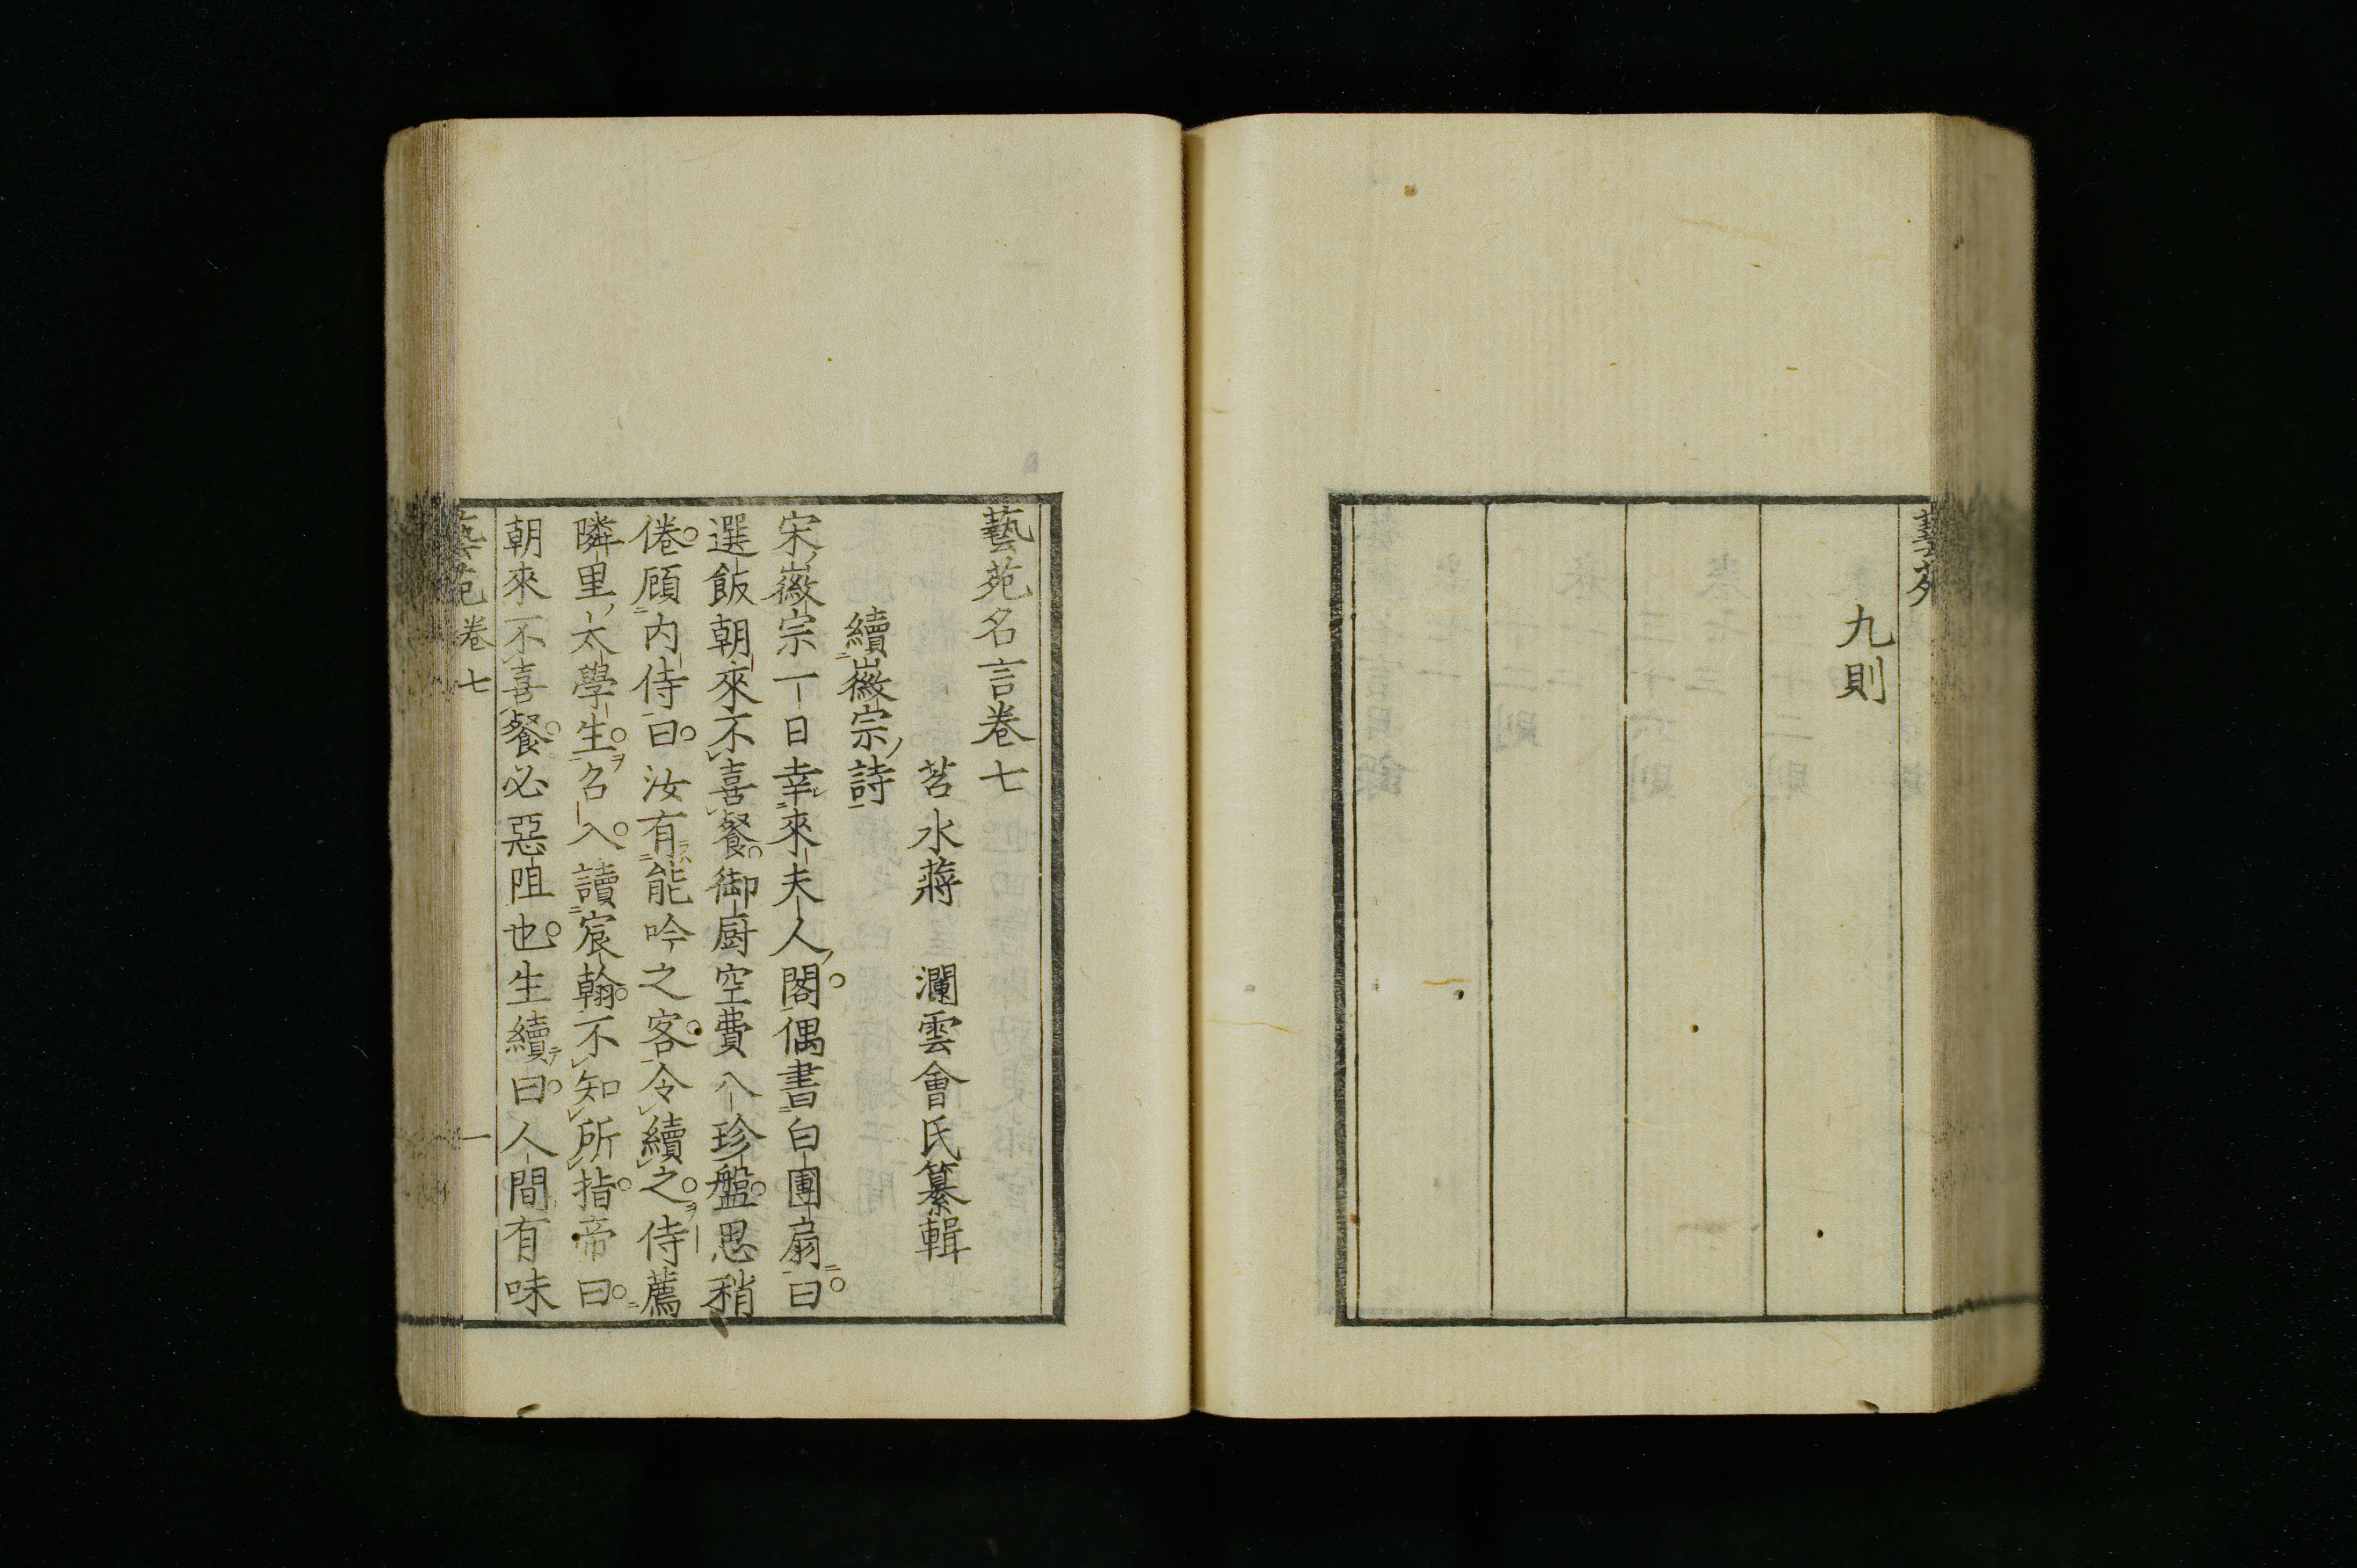 藝苑
九則
藝苑名言卷七
苕水蔣　瀾雲會氏纂輯
續徽宗詩
宋徽宗一日幸來夫人閣偶書白團扇曰
選飯朝來不喜餐御廚空費八珍盤思稍
倦顧內侍曰汝有能吟之客令續之侍薦
隣里太學生名入讀宸翰不知所指帝曰
朝來不喜餐必惡阻也生續曰人間有味
藝苑卷七　一